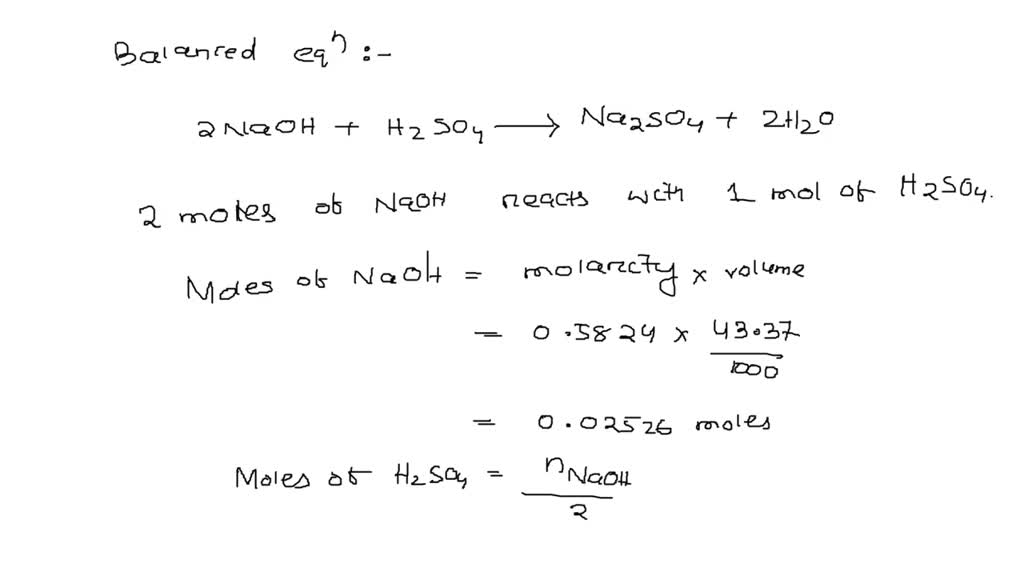 Balanced eqⁿ :-
2NaOH + H₂SO₄ ⟶ Na₂SO₄ + 2H₂O
2 moles of NaOH reacts with 1 mol of H₂SO₄.
Moles of NaOH = molarity × volume
= 0.5824 × 43.37 / 1000
= 0.02526 moles
Moles of H₂SO₄ = nNaOH / 2